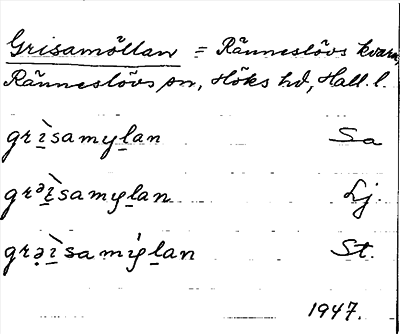 Grisamöllan = Ränneslövs kvarn,
Ränneslövs sn, Höks hd, Hall. l.
grı̱̀samyḻan Sa
grᵊı̱̀samyḻan Lj.
grə̣ı̱̀samýḻan St.
1947.